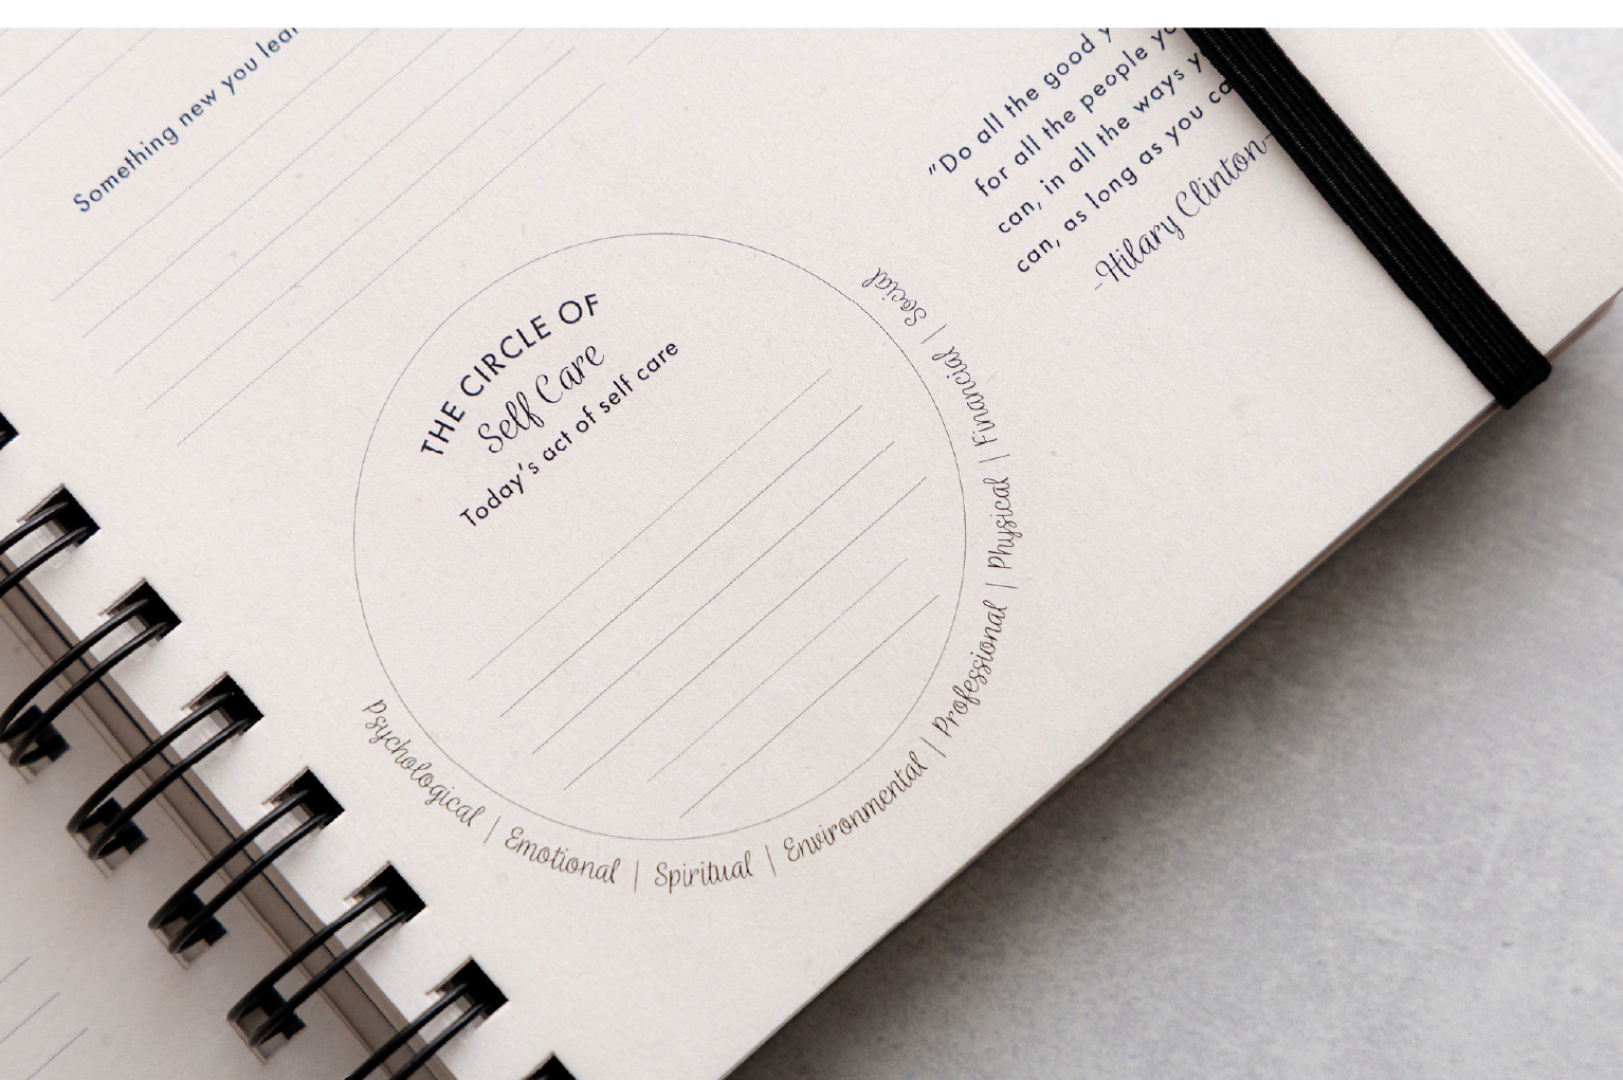 Something new you lear
"Do all the good y
for all the people yo
can, in all the ways y
can, as long as you ca
-Hilary Clinton-
THE CIRCLE OF
Self Care
Today's act of self care
Psychological | Emotional | Spiritual | Environmental | Professional | Physical | Financial | Social